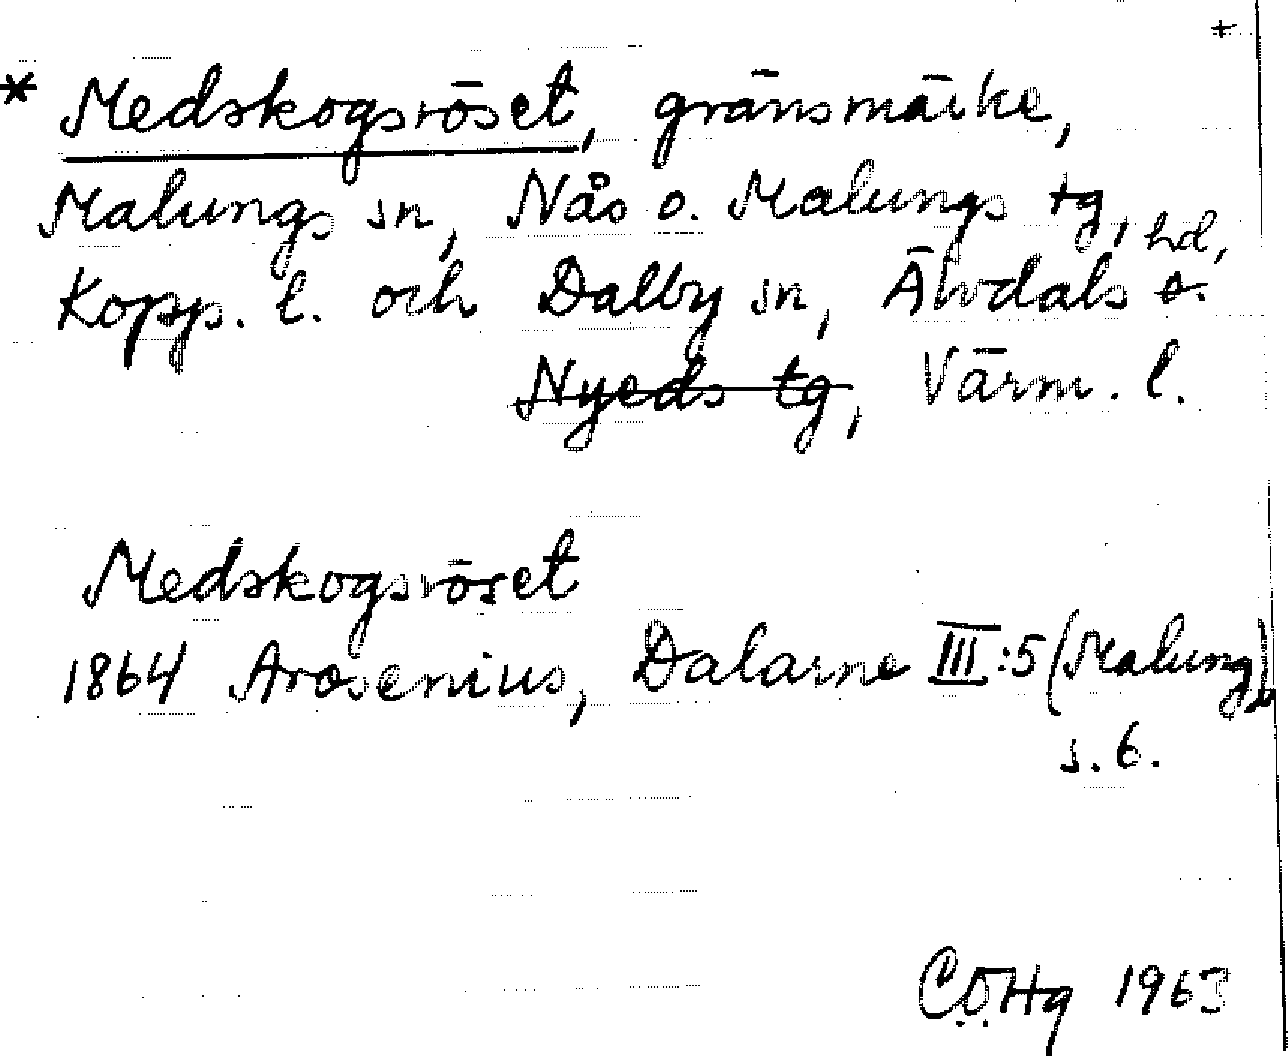 +
* Medskogsröset, gränsmärke,
Malungs sn, Nås o. Malungs tg, hd,
Kopp. l. och Dalby sn, Älvdals o.
Nyeds tg, Värm. l.
Medskogsröset
1864 Arosenius, Dalarne III:5 (Malung),
s. 6.
CÖHg 1963